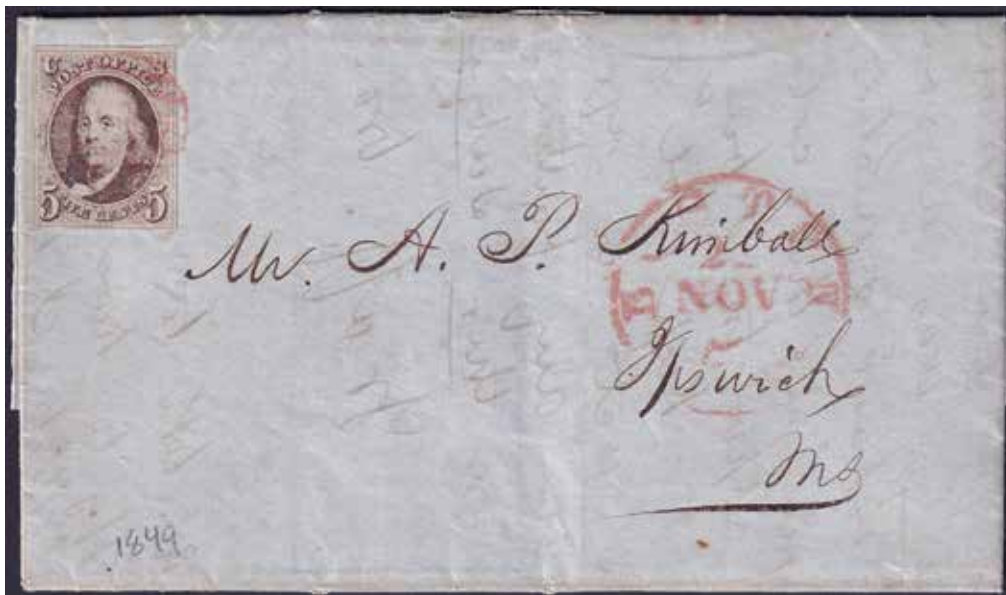 U S
POST OFFICE
5 FIVE CENTS 5
Mr. A. P. Kimball
NOV
Ipswich
Ms
1849